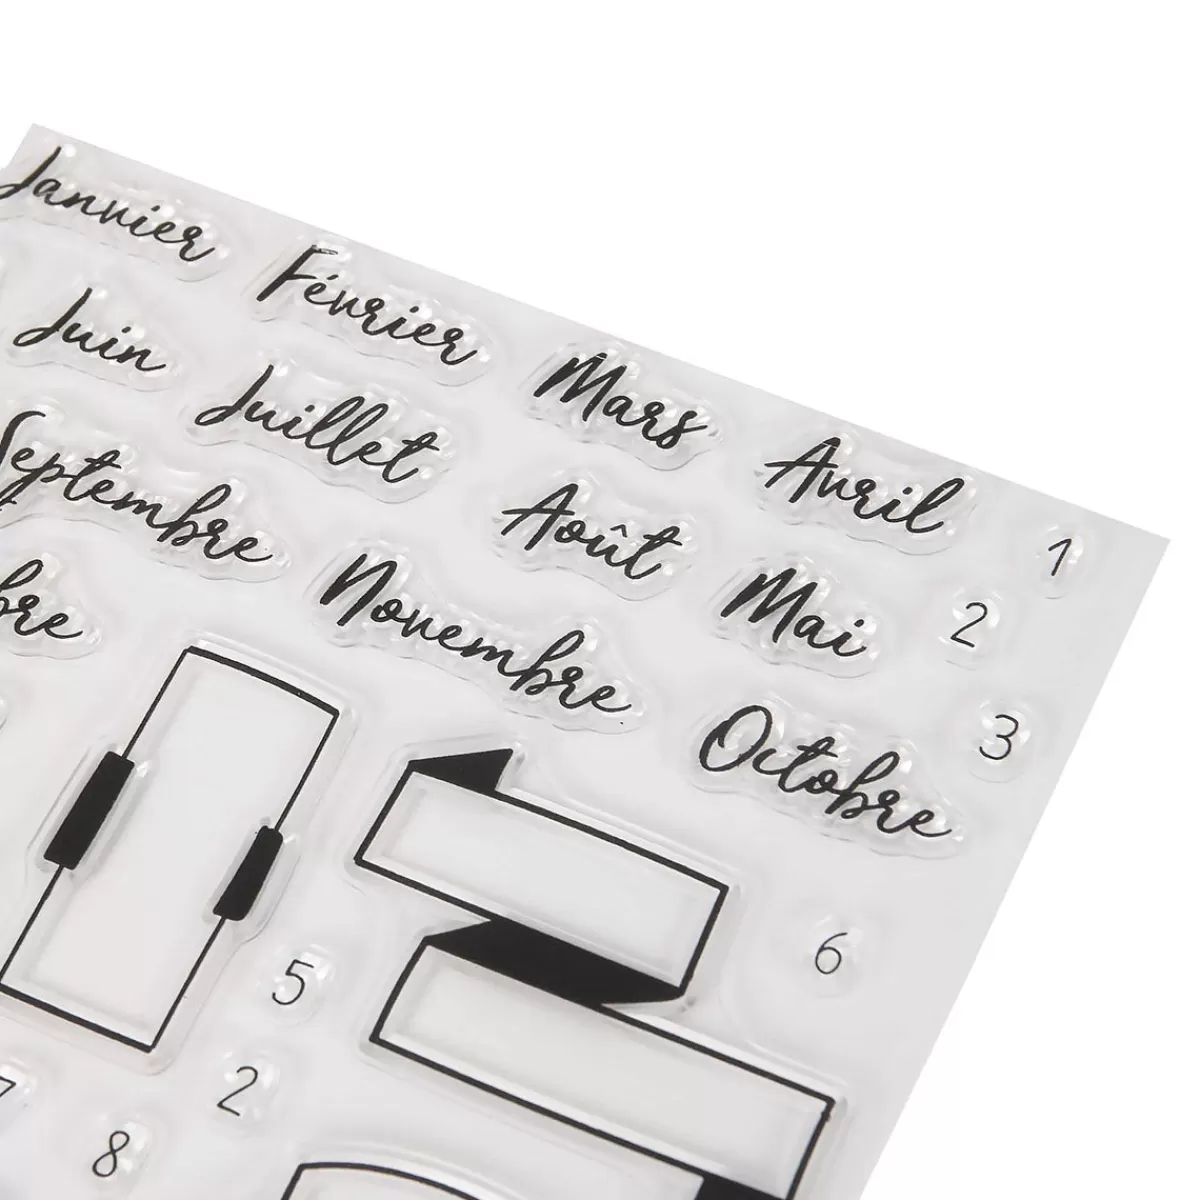 Janvier Février Mars Avril 1
Juin Juillet Août Mai 2
Septembre Novembre Octobre 3
bre
6
5
2
7
8